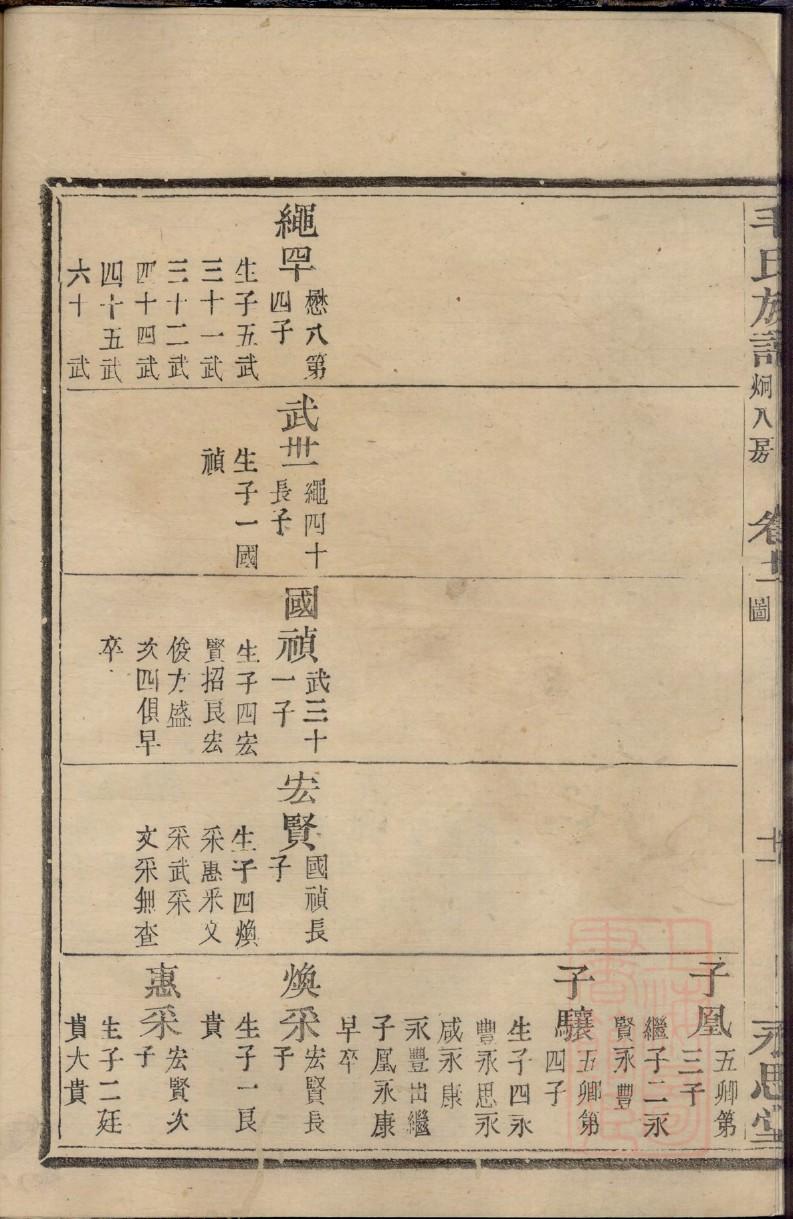 毛氏族譜 炯八房 卷廿 圖 十一 永思堂
繩罕 懋八第
四子
生子五武
三十一武
三十二武
四十四武
四十五武
六十武
武丗一 繩四十
長子
生子一國
禎
國禎 武三十
一子
生子四宏
賢招良宏
俊方盛
次四俱早
卒
宏賢 國禎長
子
生子四煥
采惠采文
采武采
文采無查
子凰 五卿第
三子
繼子二永
賢永豐
子驤 五卿第
四子
生子四永
豐永思永
咸永康
永豐出繼
子凰永康
早卒
煥采 宏賢長
子
生子一良
貴
惠采 宏賢次
子
生子二廷
貴大貴